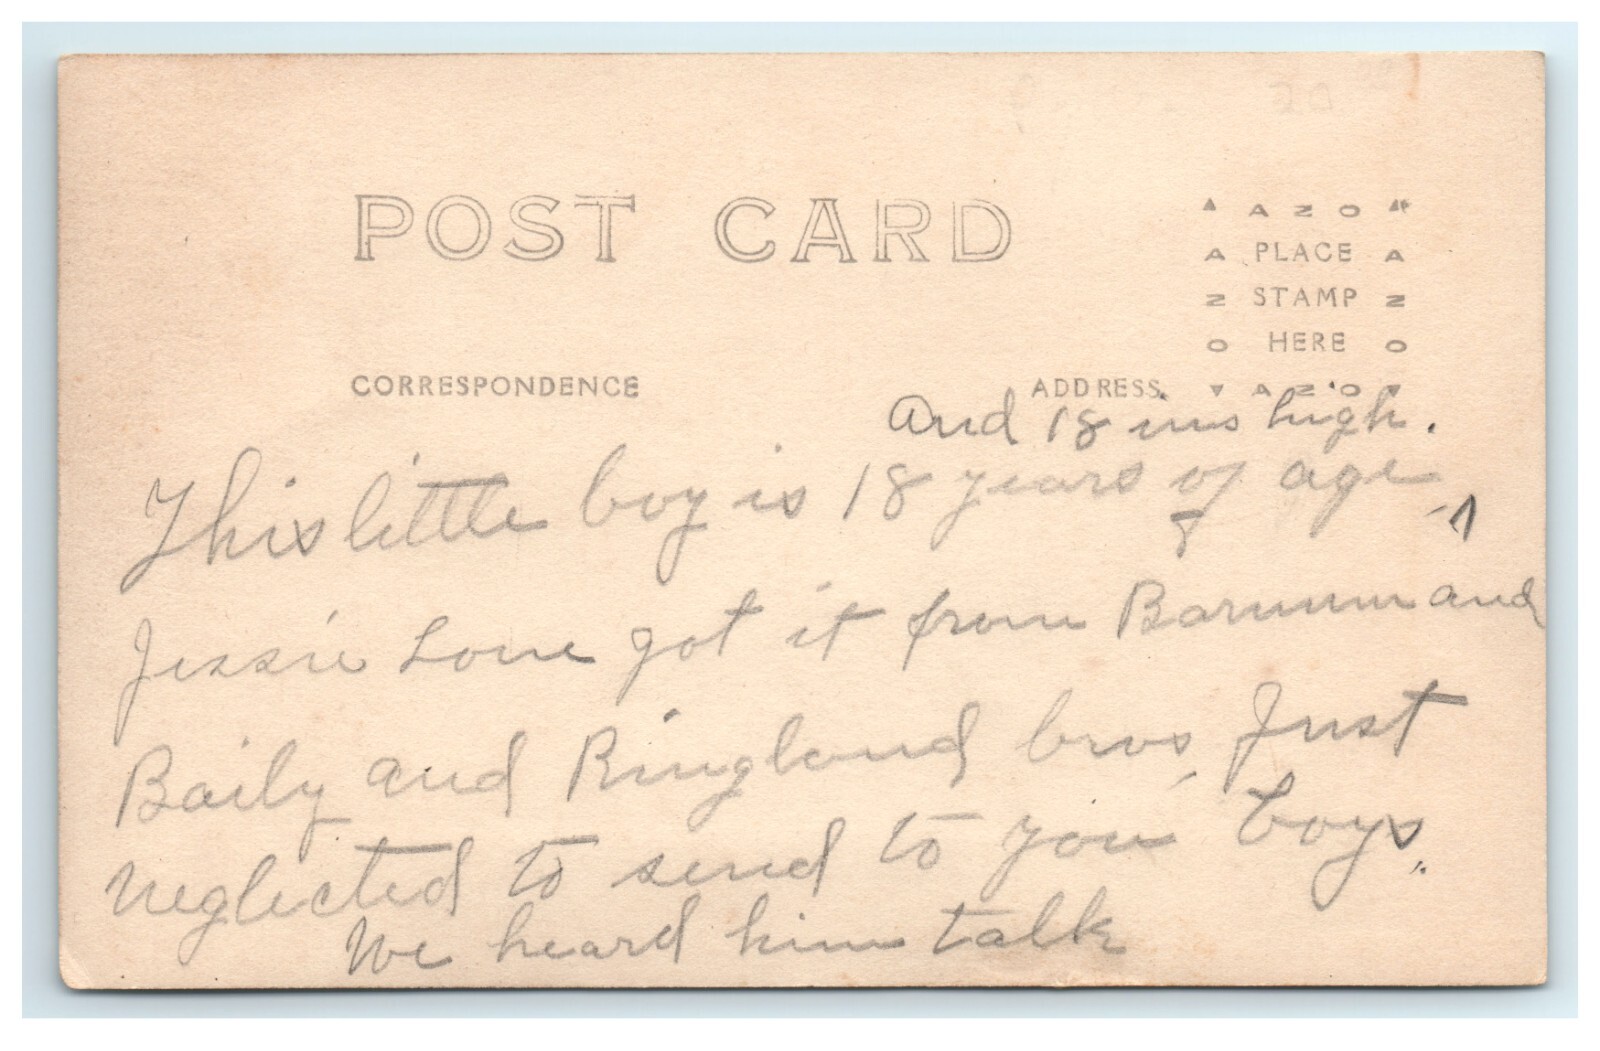 POST CARD
AZO
A PLACE A
Z STAMP Z
O HERE O
CORRESPONDENCE ADDRESS. AZO
And 18 ins high.
This little boy is 18 years of age
Jessie Lone got it from Barnum and
Baily and Ringland bros, Just
neglected to send to you boys.
We heard him talk